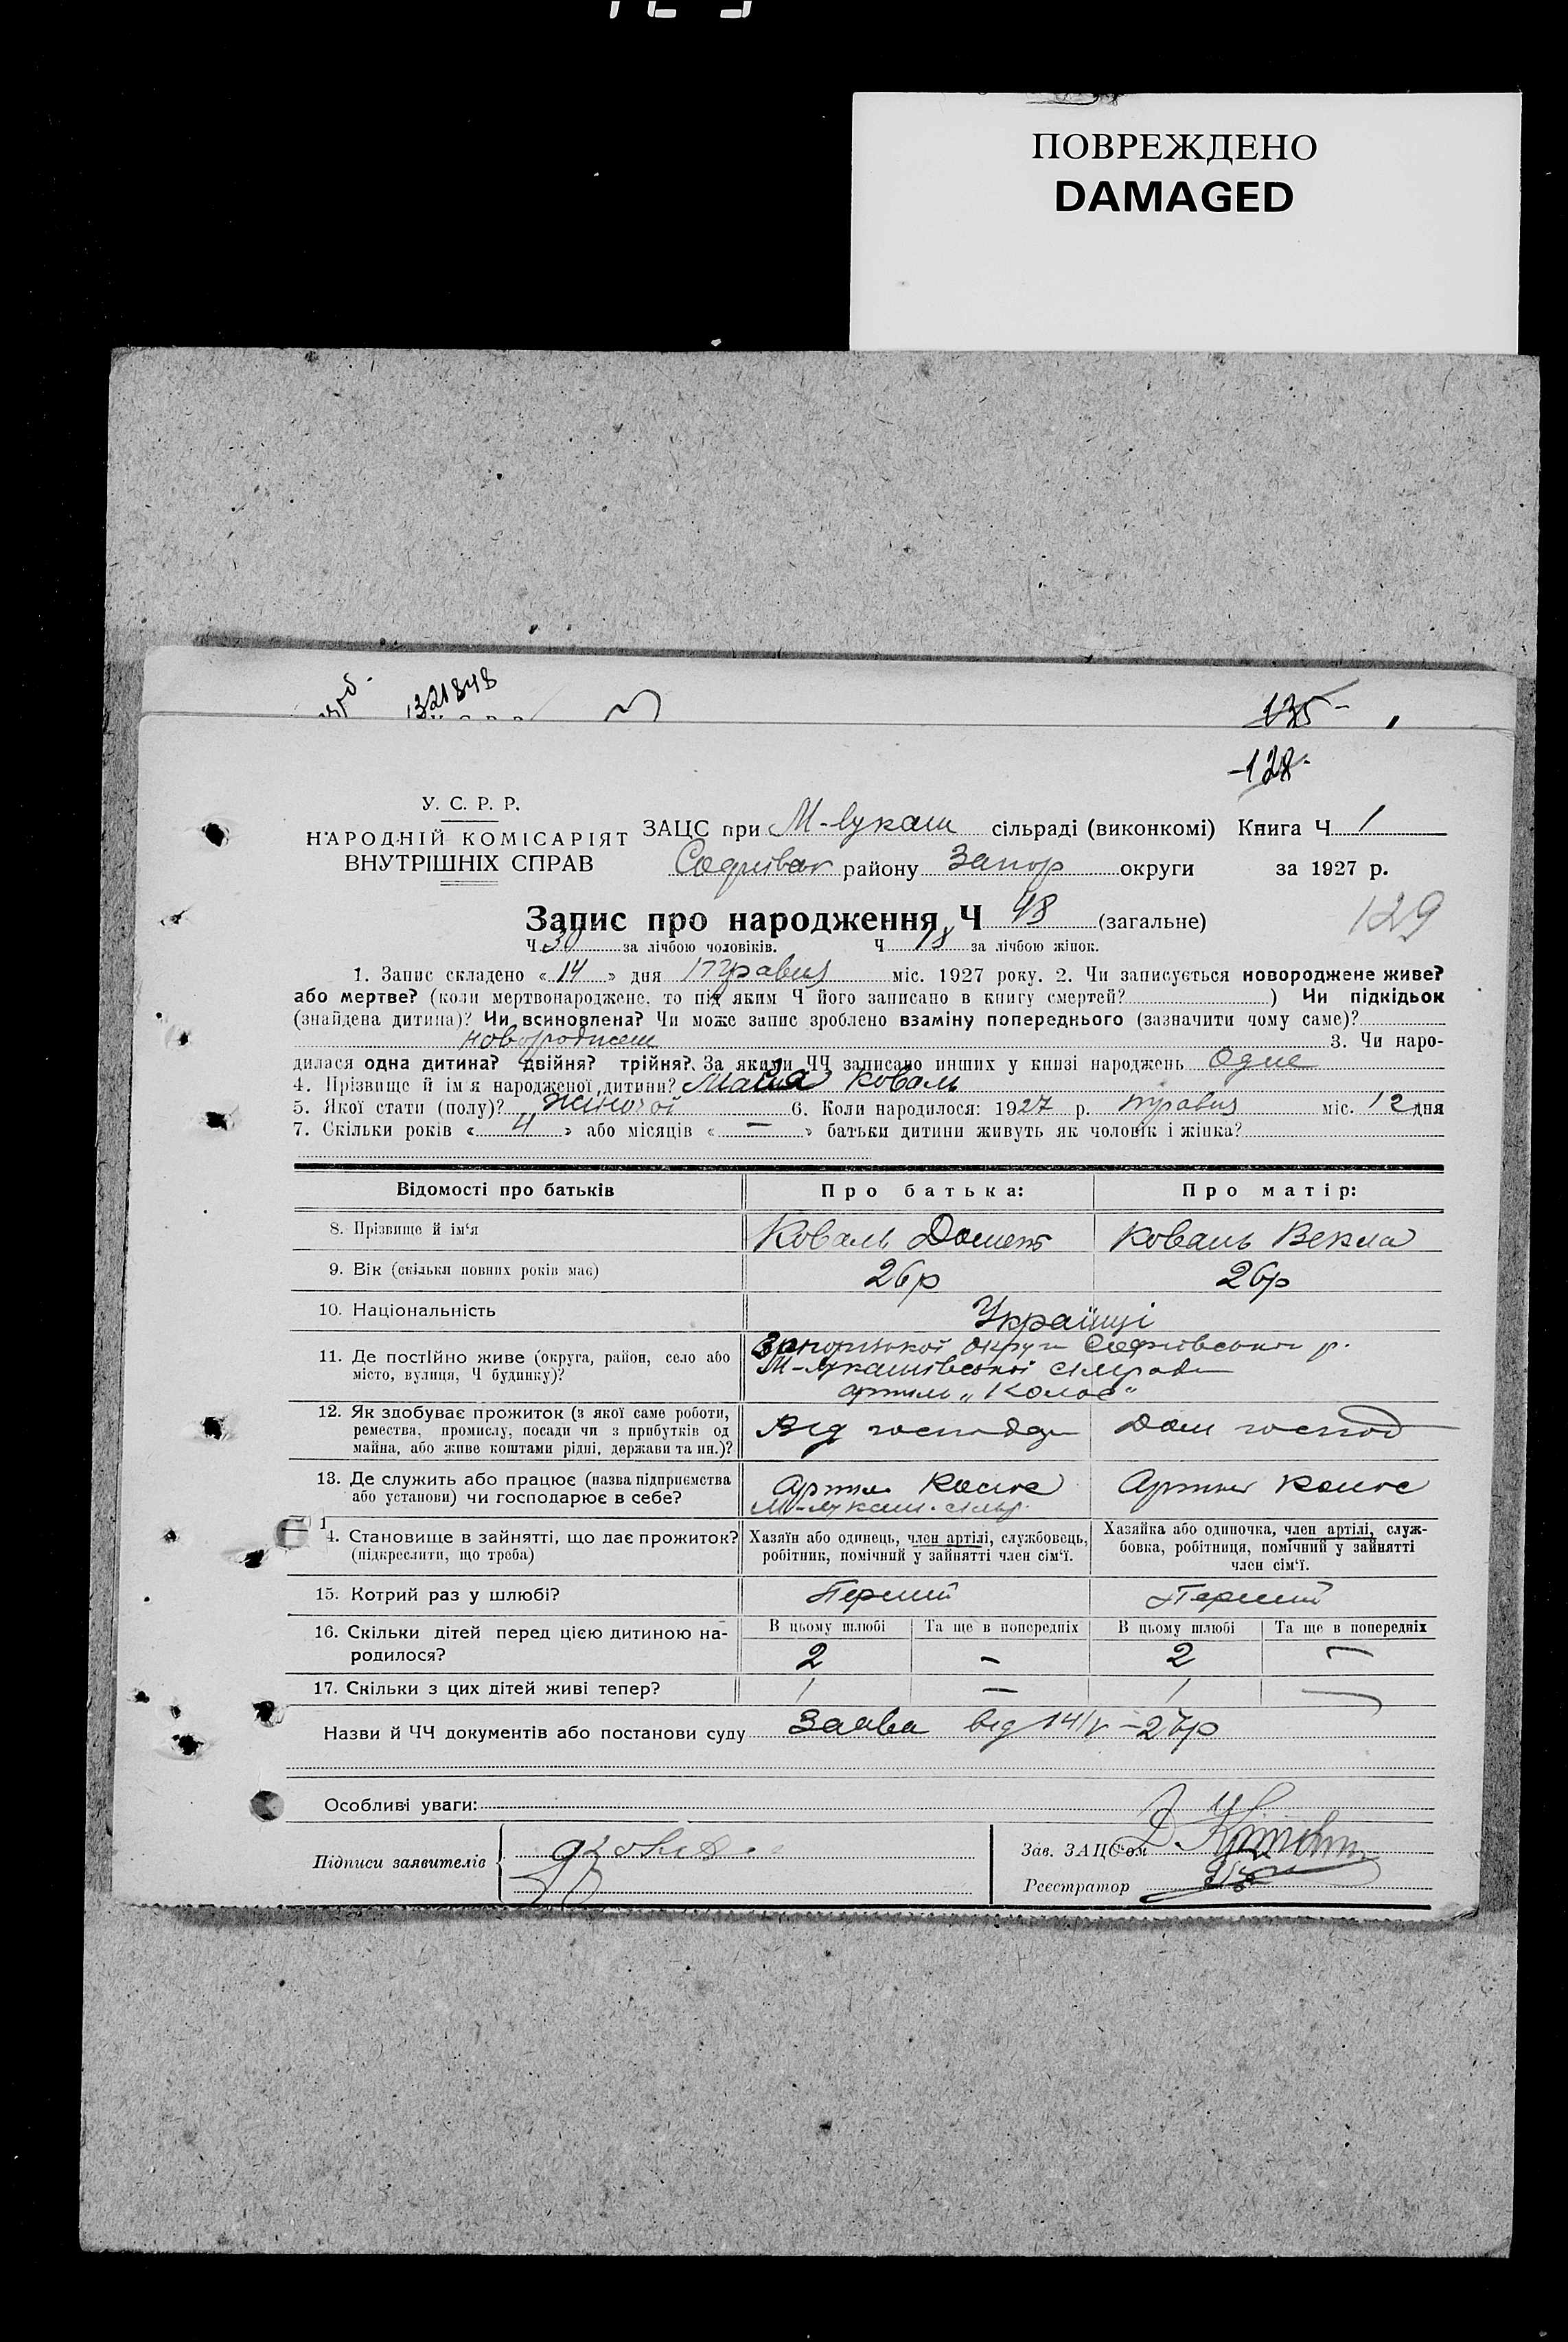 ПОВРЕЖДЕНО
DAMAGED
1321848
135-
-128-
У. С. Р. Р.
НАРОДНІЙ КОМІСАРІЯТ
ВНУТРІШНІХ СПРАВ
ЗАЦС при М-Лукаш сільраді (виконкомі) Книга Ч 1
Софіївськ району Запор округи за 1927 р.
Запис про народження Ч 48 (загальне)
129
Ч 30 за лічбою чоловіків. Ч 18 за лічбою жінок.
1. Запис складено « 14 » дня Травня міс. 1927 року. 2. Чи записується новороджене живе?
або мертве? (коли мертвонароджене, то під яким Ч його записано в книгу смертей? ) Чи підкідьок
(знайдена дитина)? Чи всиновлена? Чи може запис зроблено взаміну попереднього (зазначити чому саме)?
3. Чи наро-
дилася одна дитина? двійня? трійня? За якими ЧЧ записано инших у книзі народжень Одне
4. Прізвище й ім'я народженої дитини? Коваль
5. Якої стати (полу)? жіночої 6. Коли народилося: 1927 р. травня міс. 12 дня
7. Скільки років « 4 » або місяців « — » батьки дитини живуть як чоловік і жінка?
Відомості про батьків Про батька: Про матір:
8. Прізвище й ім'я Коваль Домент Коваль Векла
9. Вік (скільки повних років має) 26р 26р
10. Національність Українці
11. Де постійно живе (округа, район, село або
місто, вулиця, Ч будинку)?
Запоризької округи Софіївського р.
М-Лукашівської сільради
артіль „Колос“
12. Як здобуває прожиток (з якої саме роботи,
ремества, промислу, посади чи з прибутків од
майна, або живе коштами рідні, держави та ин.)?
Від господар Дом господ
13. Де служить або працює (назва підприємства
або установи) чи господарює в себе?
Артіль Колос Артіль Колос
М-Лукаш. сільр.
14. Становище в зайнятті, що дає прожиток?
(підкреслити, що треба)
Хазяїн або одинець, член артілі, службовець,
робітник, помічний у зайнятті член сім'ї.
Хазяйка або одиночка, член артілі, служ-
бовка, робітниця, помічний у зайнятті
член сім'ї.
15. Котрий раз у шлюбі? Перший Перший
16. Скільки дітей перед цією дитиною на-
родилося?
В цьому шлюбі Та ще в попередніх В цьому шлюбі Та ще в попередніх
2 – 2 –
17. Скільки з цих дітей живі тепер? 1 — 1 —
Назви й ЧЧ документів або постанови суду Заява від 14/V – 27р
Особливі уваги:
Підписи заявителів
Зав. ЗАЦС'ом
Реєстратор